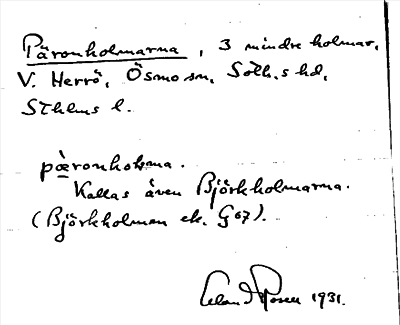 Päronholmarna, 3 mindre holmar,
V. Herrö, Ösmo sn, Soth.s hd,
Sthlms l.
pæ̀ronholma.
Kallas även Björkholmarna.
(Björkholmen ek. G67).
1931.